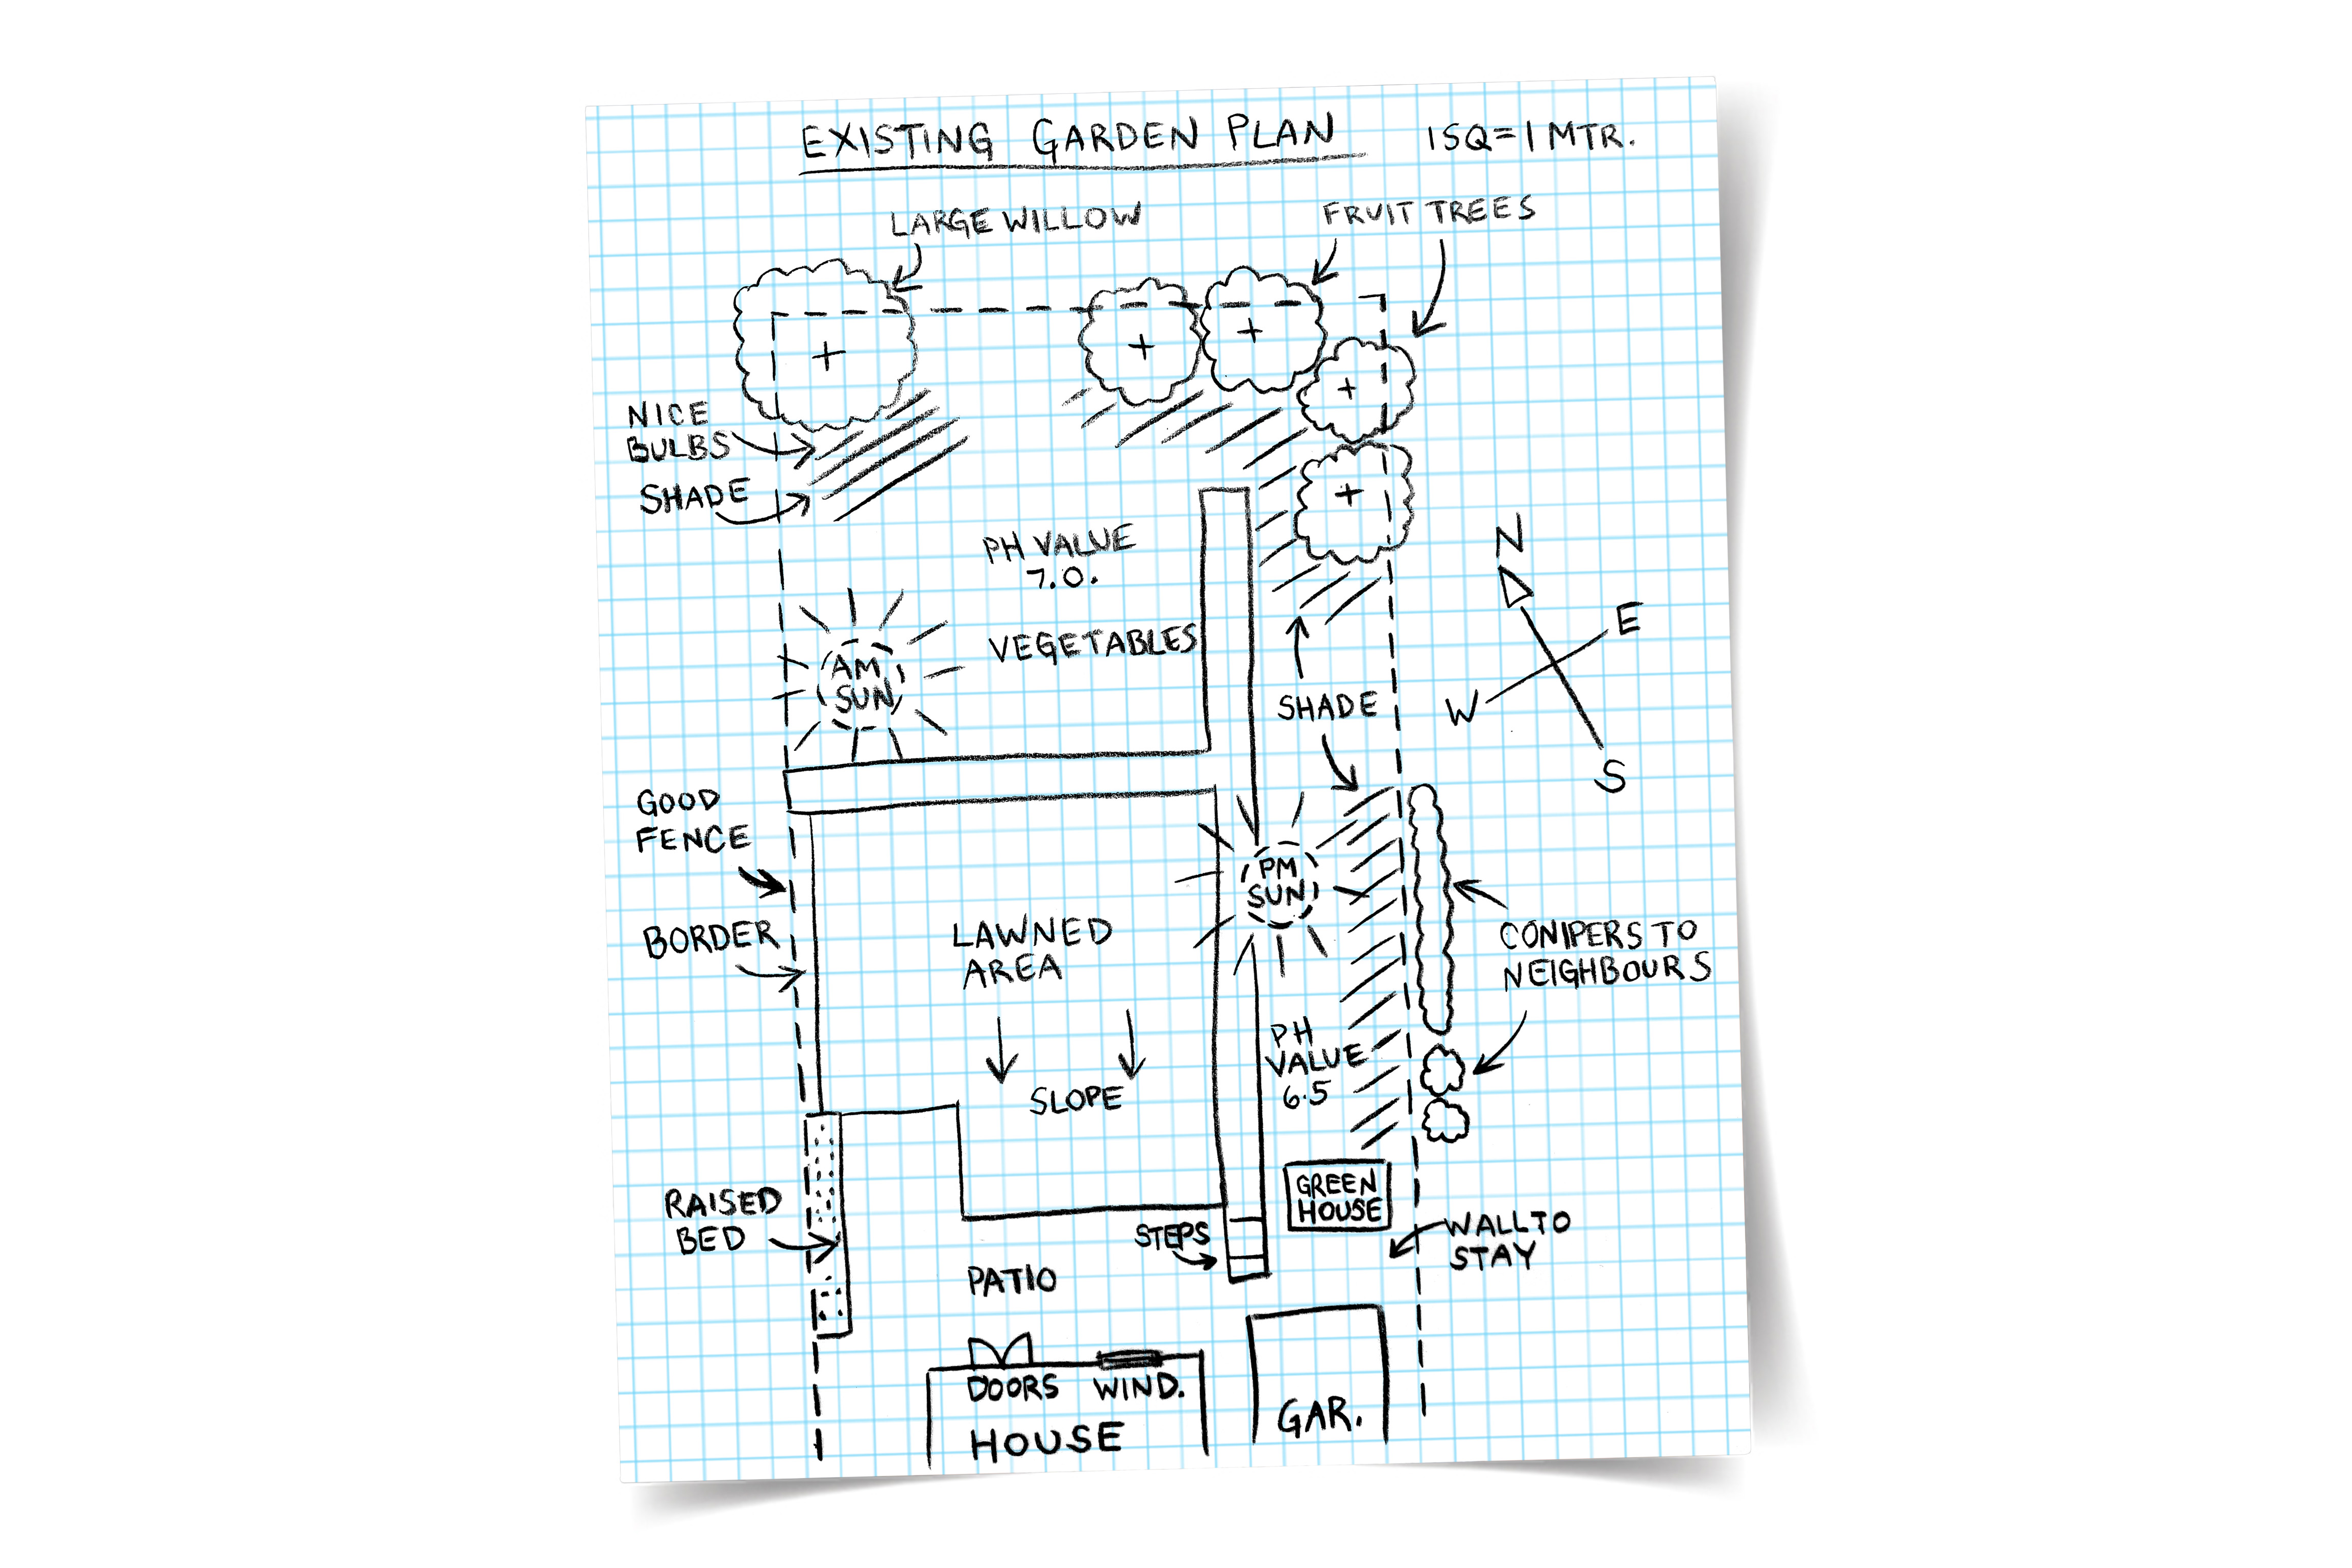 EXISTING GARDEN PLAN
1SQ=1MTR.
LARGE WILLOW
FRUIT TREES
NICE
BULBS
SHADE
PH VALUE
7.0.
VEGETABLES
AM
SUN
N
E
W
S
SHADE
GOOD
FENCE
BORDER
PM
SUN
LAWNED
AREA
CONIPERS TO
NEIGHBOURS
SLOPE
PH
VALUE
6.5
RAISED
BED
GREEN
HOUSE
STEPS
WALL TO
STAY
PATIO
DOORS WIND.
HOUSE
GAR.